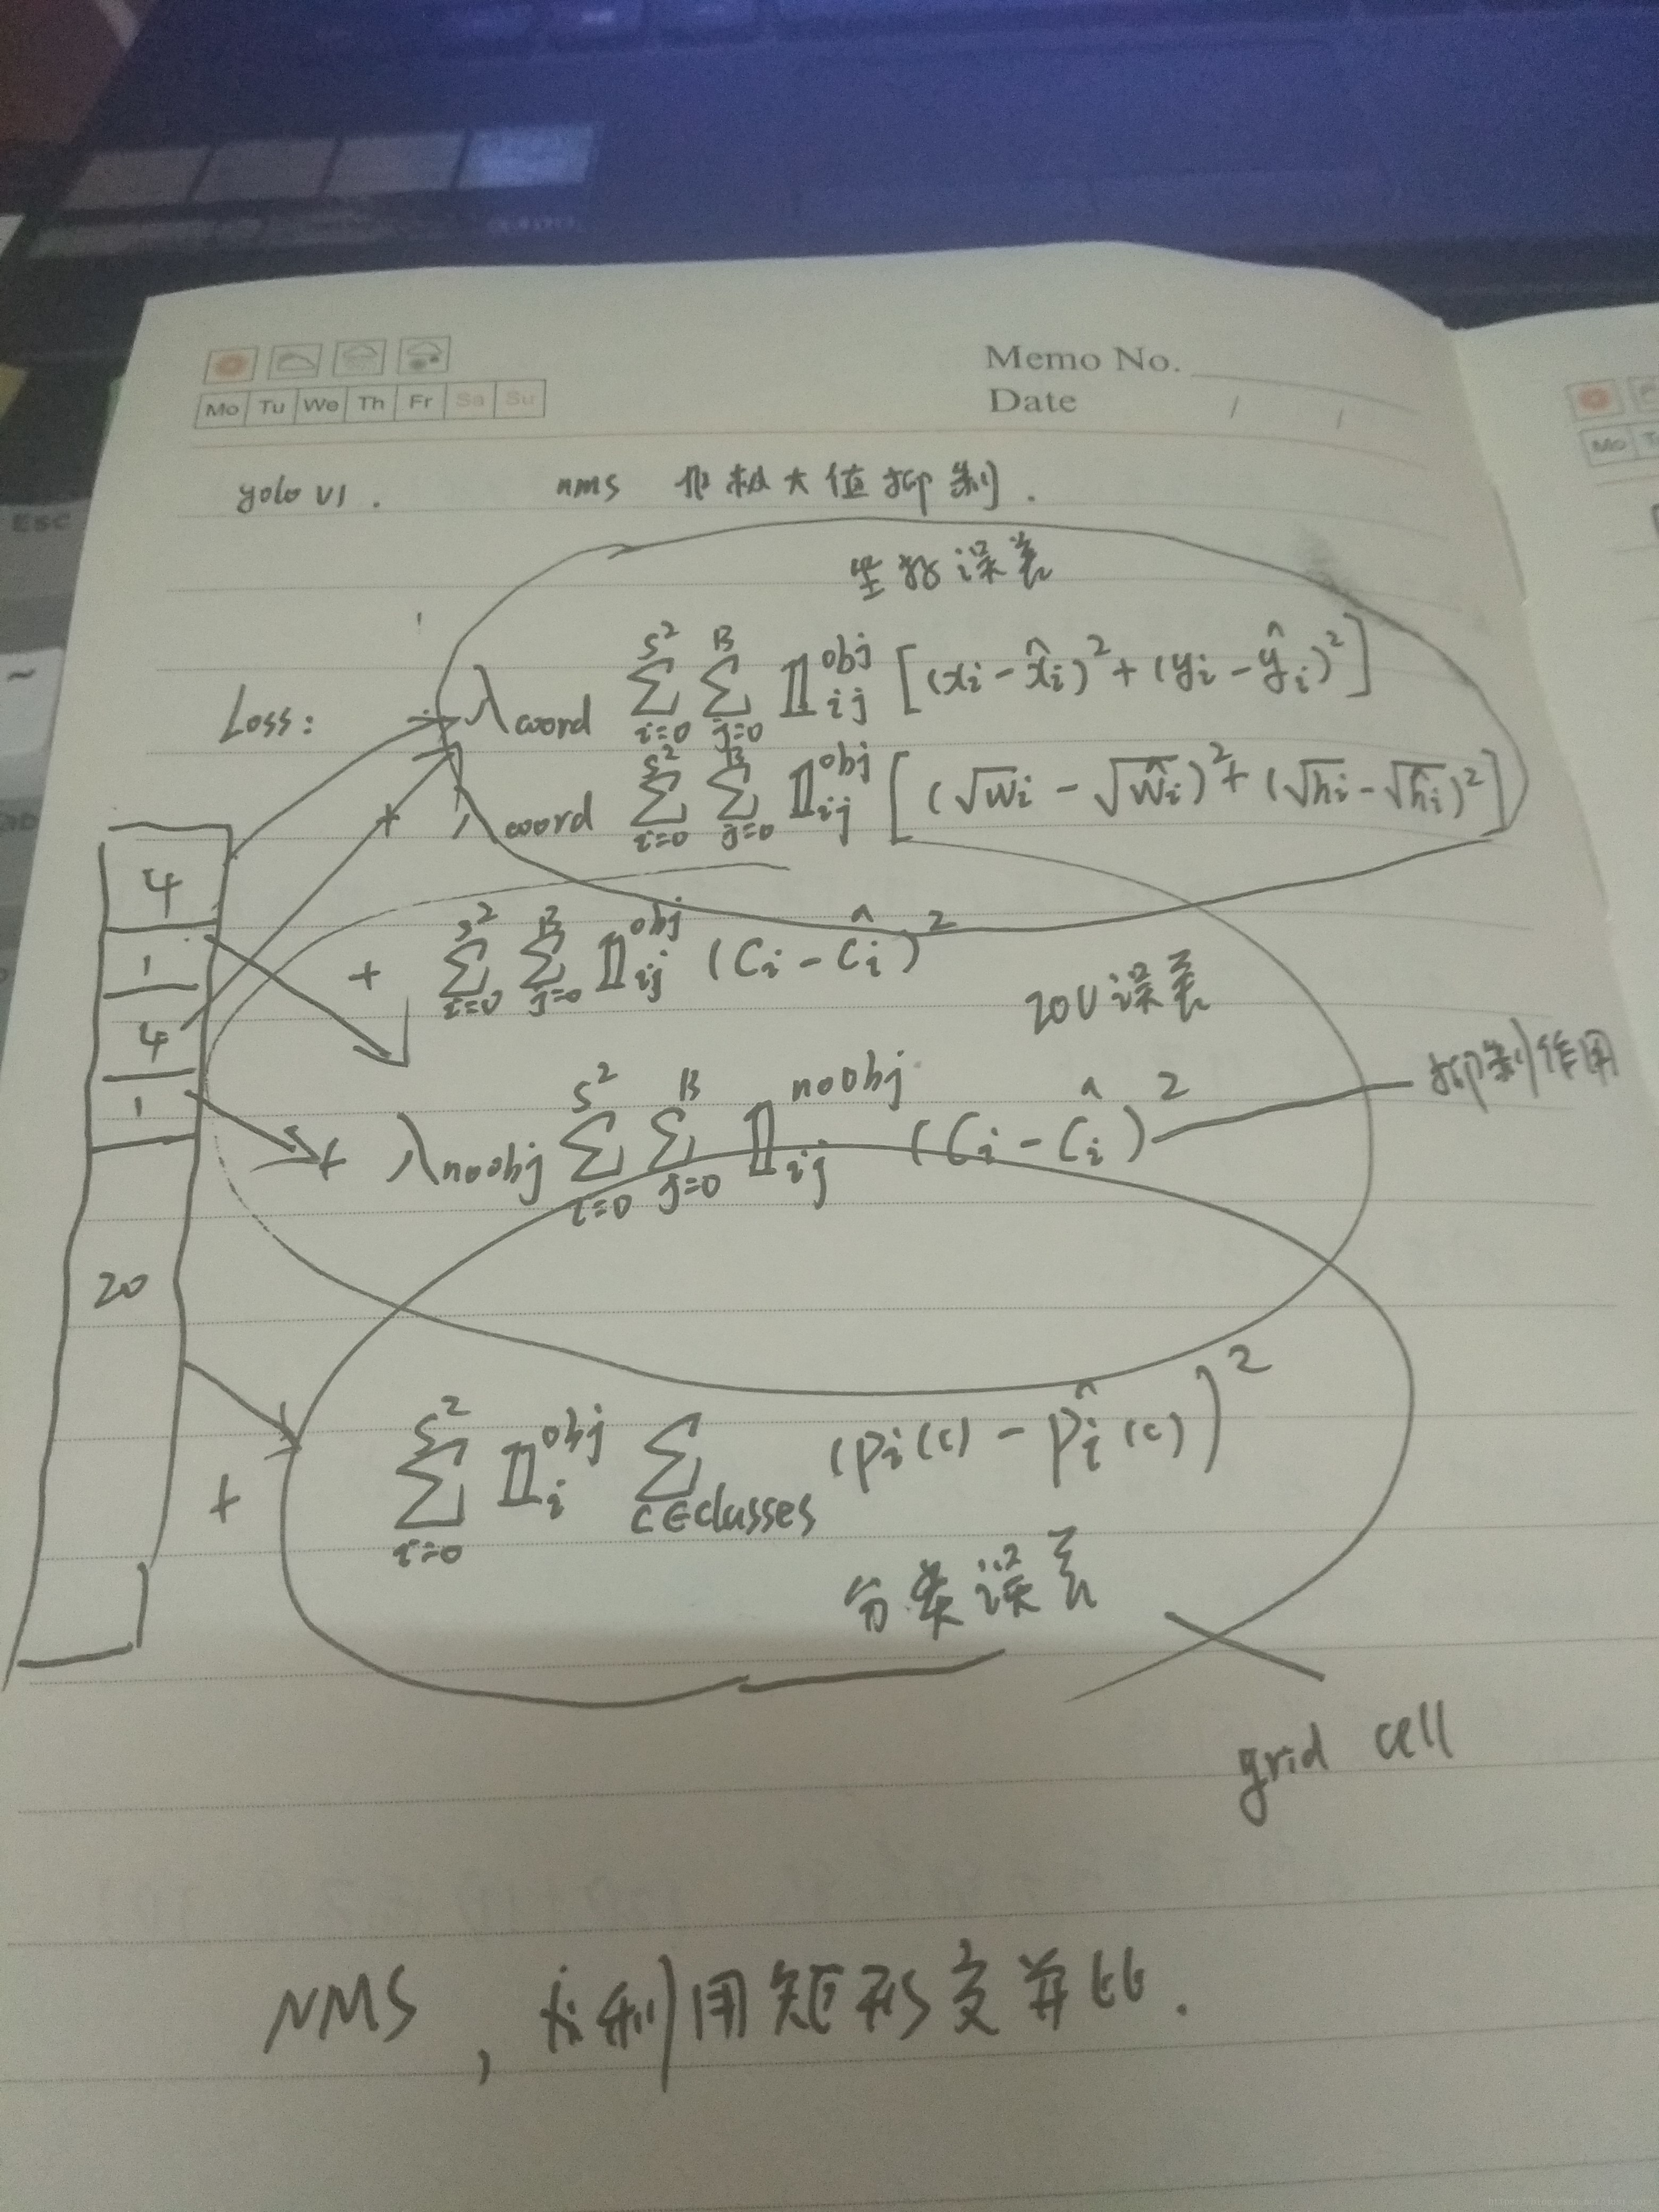 Memo No.
Mo Tu We Th Fr Sa Su
Date / /
yolo v1. nms 非极大值抑制.
坐标误差
Loss: λcoord ∑_{i=0}^{S^2} ∑_{j=0}^{B} 𝟙_{ij}^{obj} [(x_i - x̂_i)^2 + (y_i - ŷ_i)^2]
+ λcoord ∑_{i=0}^{S^2} ∑_{j=0}^{B} 𝟙_{ij}^{obj} [(√w_i - √ŵ_i)^2 + (√h_i - √ĥ_i)^2]
4
+ ∑_{i=0}^{S^2} ∑_{j=0}^{B} 𝟙_{ij}^{obj} (C_i - Ĉ_i)^2
1
IOU误差
4
抑制作用
1
+ λnoobj ∑_{i=0}^{S^2} ∑_{j=0}^{B} 𝟙_{ij}^{noobj} (C_i - Ĉ_i)^2
20
+ ∑_{i=0}^{S^2} 𝟙_{i}^{obj} ∑_{c∈classes} (p_i(c) - p̂_i(c))^2
分类误差
grid cell
NMS, 利用矩形交并比.
Esc
~
Mo